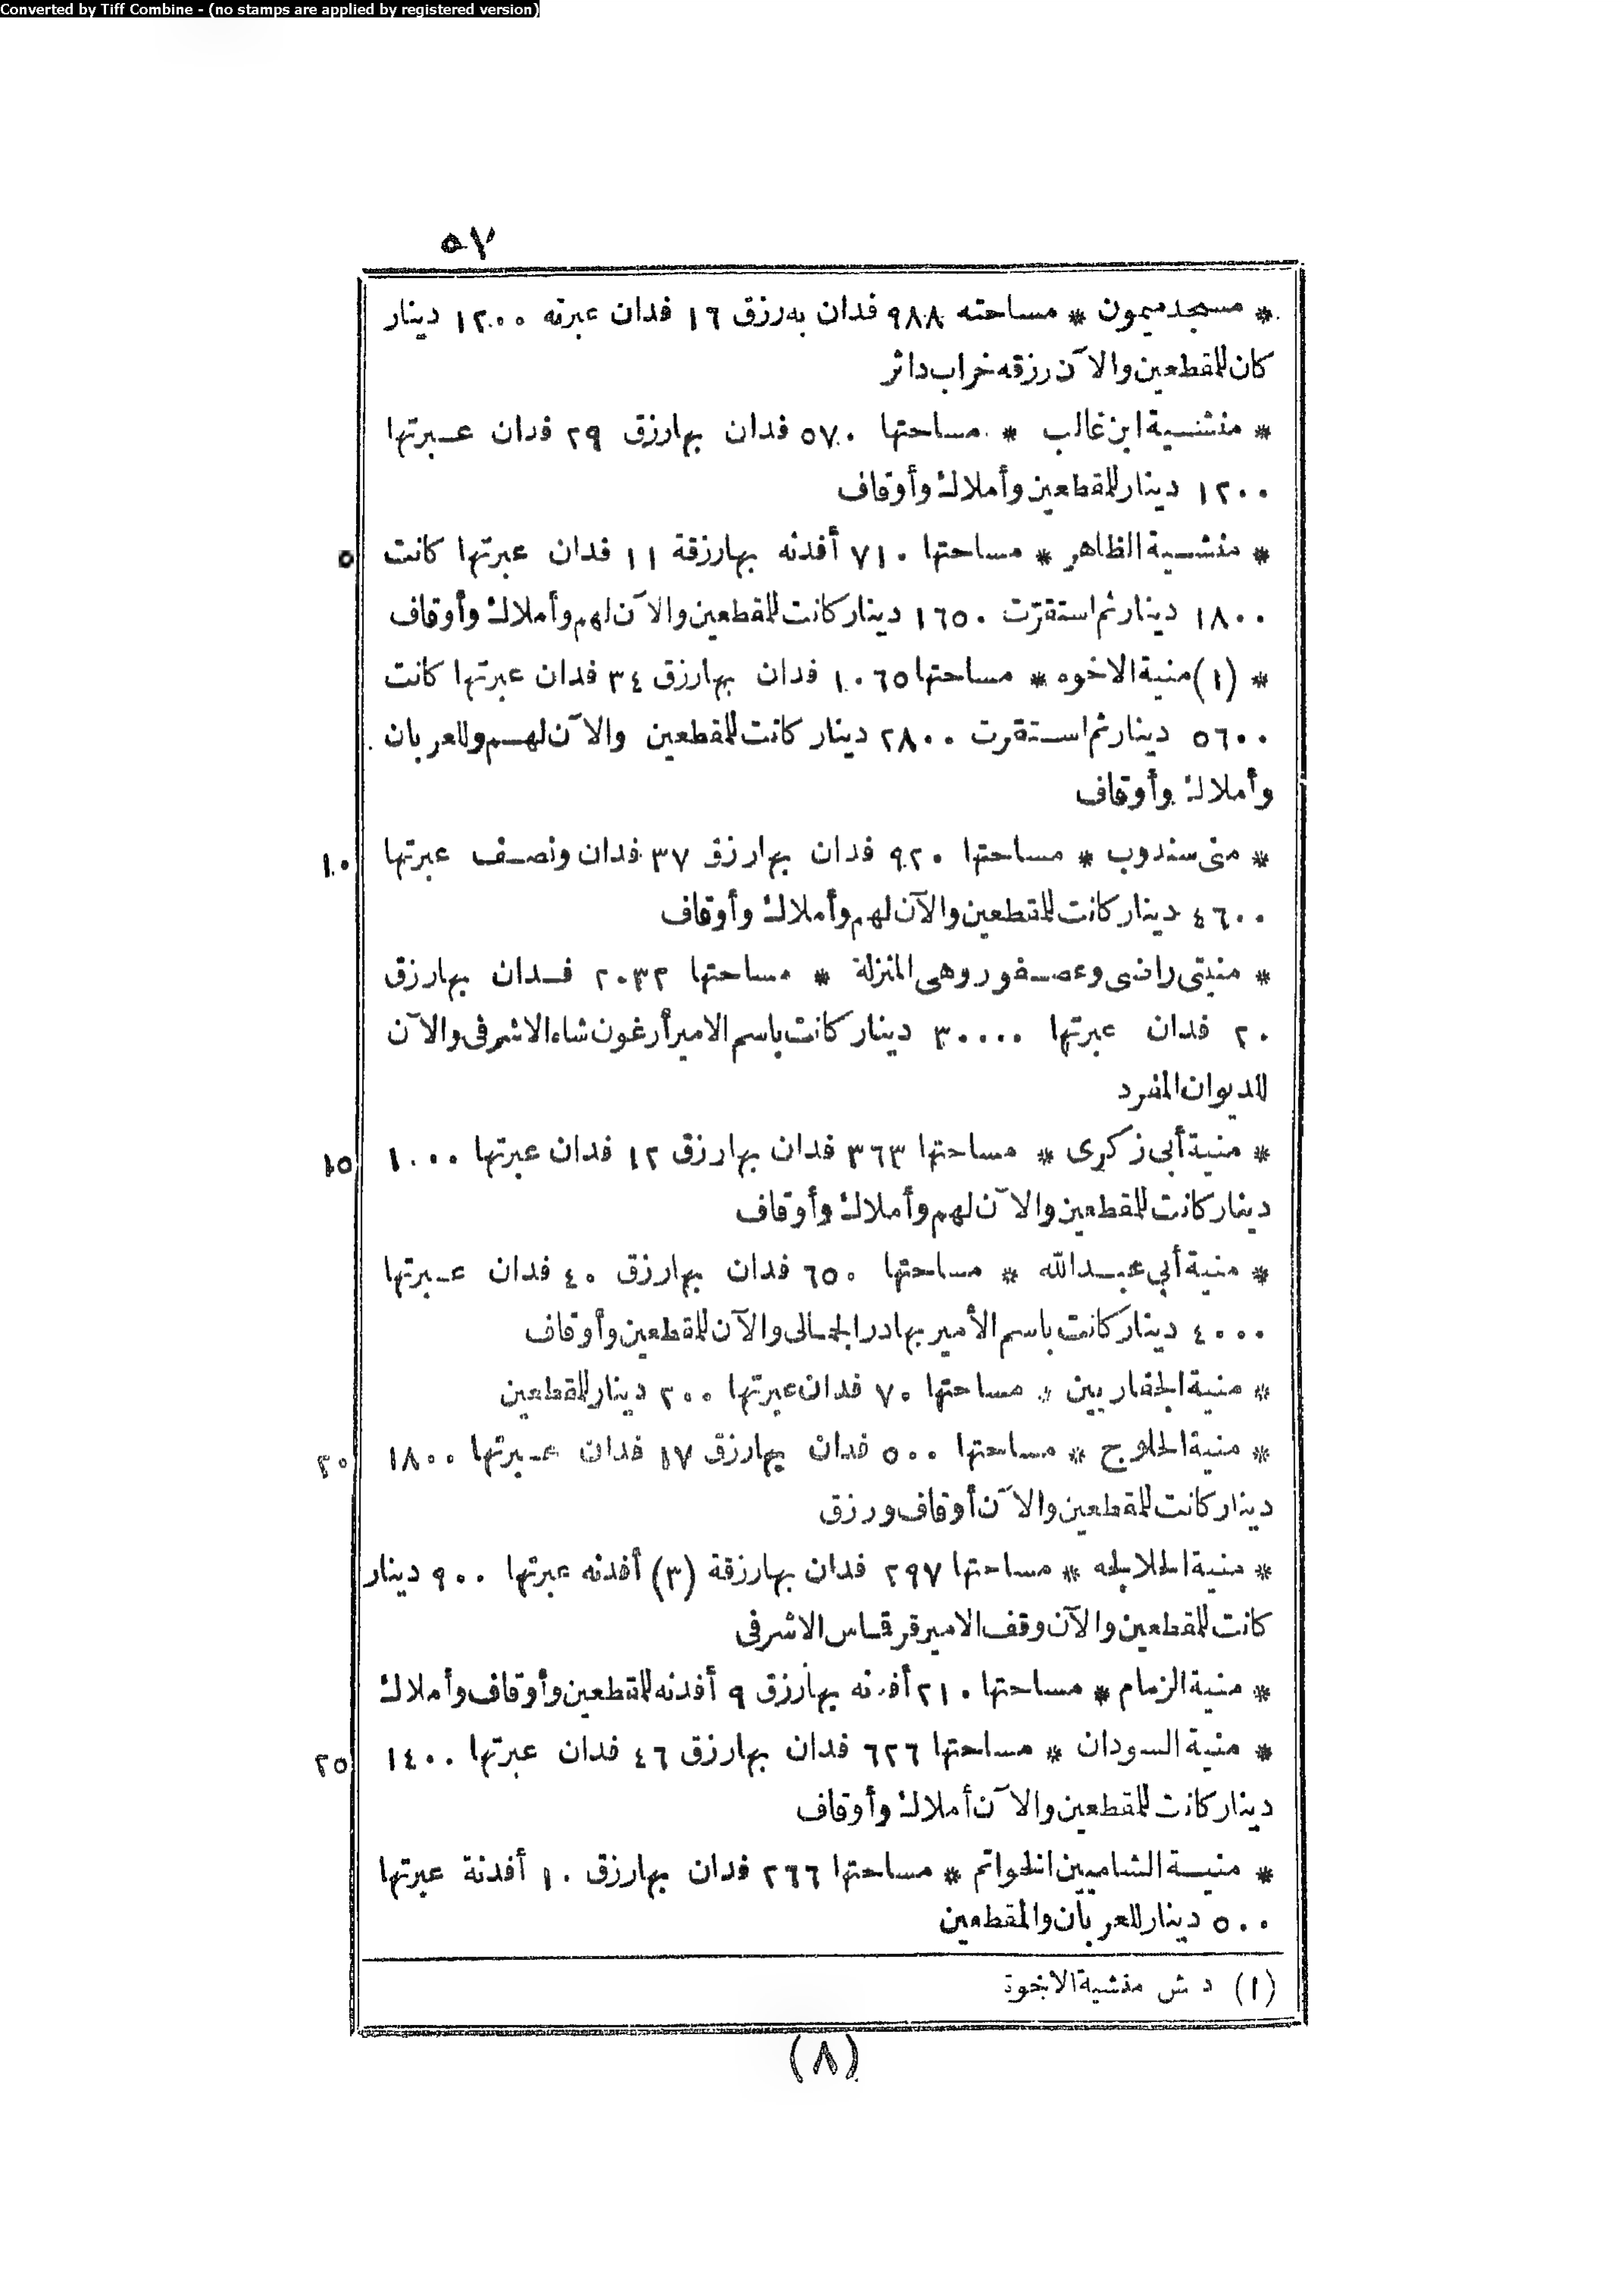 Converted by Tiff Combine - (no stamps are applied by registered version)
٥٧
* مسجد ميمون * مساحته ٩٨٨ فدان به رزق ١٦ فدان عبرته ١٢٠٠ دينار
كان للمقطعين والآن رزقه خراب داثر
* منشية ابن غالب * مساحتها ٥٧٠ فدان بها رزق ٢٩ فدان عبرتها
١٢٠٠ دينار للمقطعين وأملاك وأوقاف
* منشية الظاهر * مساحتها ٧١٠ أفدنه بها رزقة ١١ فدان عبرتها كانت
٥
١٨٠٠ دينار ثم استقرّت ١٦٥٠ دينار كانت للمقطعين والآن لهم وأملاك وأوقاف
* (١) منية الاخوه * مساحتها ١٠٦٥ فدان بها رزق ٣٤ فدان عبرتها كانت
٥٦٠٠ دينار ثم استقرت ٢٨٠٠ دينار كانت للمقطعين والآن لهم وللعربان
وأملاك وأوقاف
* منى سندوب * مساحتها ٩٢٠ فدان بها رزق ٣٧ فدان ونصف عبرتها
١٠
٤٦٠٠ دينار كانت للمقطعين والآن لهم وأملاك وأوقاف
* منيتى راضى وعصفور وهى المنزلة * مساحتها ٢٠٣٢ فدان بها رزق
٢٠ فدان عبرتها ٣٠٠٠٠ دينار كانت باسم الامير أرغون شاه الاشرفى والآن
للديوان المفرد
* منية أبى زكرى * مساحتها ٣٦٣ فدان بها رزق ١٢ فدان عبرتها ١٠٠٠
١٥
دينار كانت للمقطعين والآن لهم وأملاك وأوقاف
* منية أبى عبد الله * مساحتها ٦٥٠ فدان بها رزق ٤٠ فدان عبرتها
٤٠٠٠ دينار كانت باسم الأمير بهادر الجمالى والآن للمقطعين وأوقاف
* منية الجفاريين * مساحتها ٧٠ فدان عبرتها ٢٠٠ دينار للمقطعين
* منية الحلوج * مساحتها ٥٠٠ فدان بها رزق ١٧ فدان عبرتها ١٨٠٠
٢٠
دينار كانت للمقطعين والآن أوقاف ورزق
* منية الحلابجه * مساحتها ٢٩٧ فدان بها رزقة (٣) أفدنه عبرتها ٩٠٠ دينار
كانت للمقطعين والآن وقف الامير قرقماس الاشرفى
* منية الزمام * مساحتها ٢١٠ أفدنه بها رزق ٩ أفدنه للمقطعين وأوقاف وأملاك
* منية السودان * مساحتها ٦٢٦ فدان بها رزق ٤٦ فدان عبرتها ١٤٠٠
٢٥
دينار كانت للمقطعين والآن أملاك وأوقاف
* منية الشاميين الخواتم * مساحتها ٢٦٦ فدان بها رزق ١٠ أفدنة عبرتها
٥٠٠ دينار للعربان والمقطعين
(١) د ش منشية الاخوة
(٨)